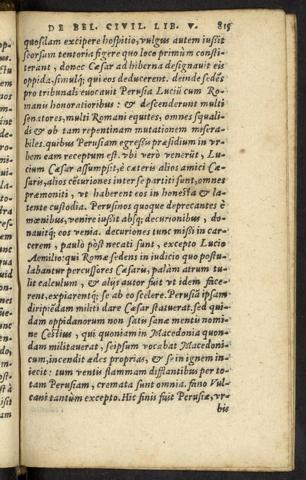 DE BEL. CIVIL. LIB. V. 815
quosdam excipere hospitio, vulgus autem iussit
seorsam tentoria figere quo loco primùm consti-
terant, donec Cæsar ad hiberna designauit eis
oppida, simulq; qui eos deducerent. deinde sedẽs
pro tribunali euocauit Perusia Luciũ cum Ro-
manis honoratioribus: & descenderunt multi
senatores, multi Romani equites, omnes squali-
di & ob tam repentinam mutationem misera-
biles. quibus Perusiam egressis præsidium in vr-
bem eam receptum est. vbi verò venerũt, Lu-
cium Cæsar assumpsit, è cæteris alios amici Cæ-
saris, alios cẽturiones inter se partiti sunt, omnes
præmoniti, vt haberent eos in honesta & la-
tente custodia. Perusinos quoque deprecantes è
mœnibus, venire iussit absq; decurionibus, do-
nauitq; eos venia. decuriones tunc missi in car-
cerem, paulò pòst necati sunt, excepto Lucio
Aemilio: qui Romæ sedens in iudicio quo postu-
labantur percussores Cæsaris, palàm atrum tu-
lit calculum, & alijs autor fuit vt idem face-
rent, expiarentq; se ab eo scelere. Perusiã ipsam
diripiẽdam militi dare Cæsar statuerat. sed qui-
dam oppidanorum non satis sanæ mentis nomi-
ne Cestius, qui quoniam in Macedonia quon-
dam militauerat, seipsum vocabat Macedoni-
cum, incendit ædes proprias, & se in ignem in-
iecit: tum ventis flammam differentibus per to-
tam Perusiam, cremata sunt omnia. fano Vul-
cani tantùm excepto. Hic finis fuit Perusiæ, vr-
bis